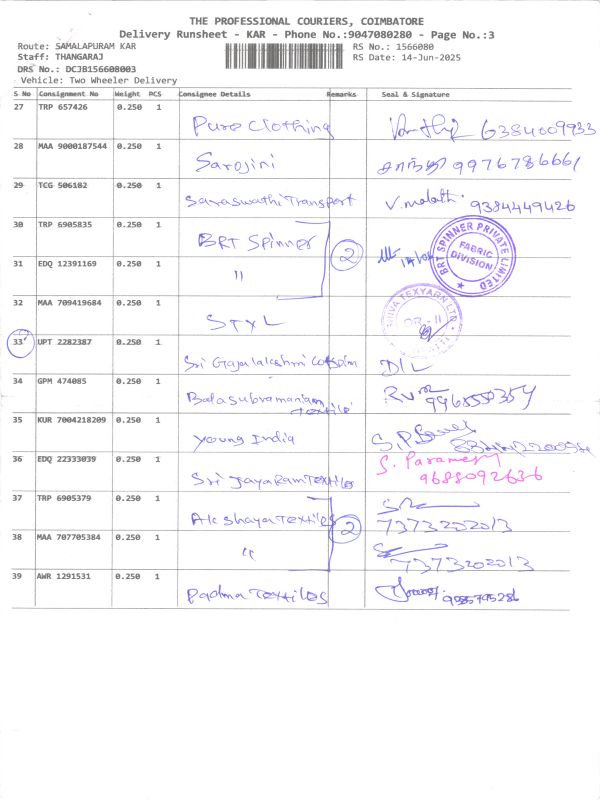 THE PROFESSIONAL COURIERS, COIMBATORE
Delivery Runsheet - KAR - Phone No.:9047080280 - Page No.:3
Route: SAMALAPURAM KAR
RS No.: 1566080
Staff: THANGARAJ
RS Date: 14-Jun-2025
DRS No.: DCJB156608003
Vehicle: Two Wheeler Delivery
S No Consignment No Weight PCS Consignee Details Remarks Seal & Signature
27 TRP 657426 0.250 1
Pure Clothing 6384009933
28 MAA 9000187544 0.250 1
Sarojini சாந்தி 9976786661
29 TCG 506182 0.250 1
Saraswathi Transport V. malathi 9384449426
30 TRP 6905835 0.250 1
BRT Spinner 2
BRT SPINNER PRIVATE LIMITED
FABRIC DIVISION
31 EDQ 12391169 0.250 1
"
32 MAA 709419684 0.250 1
STYL
TEXYARN LTD
33 UPT 2282387 0.250 1
Sri Gajalalakshmi Cotspin D/L
34 GPM 474085 0.250 1
Balasubramaniam Textile
35 KUR 7004218209 0.250 1
Young India
36 EDQ 22333039 0.250 1
Sri JayaRam Textiles S. Paramesh 9688092636
37 TRP 6905379 0.250 1
Akshaya Textiles 2 7373202013
38 MAA 707705384 0.250 1
" 7373202013
39 AWR 1291531 0.250 1
Padma Textiles